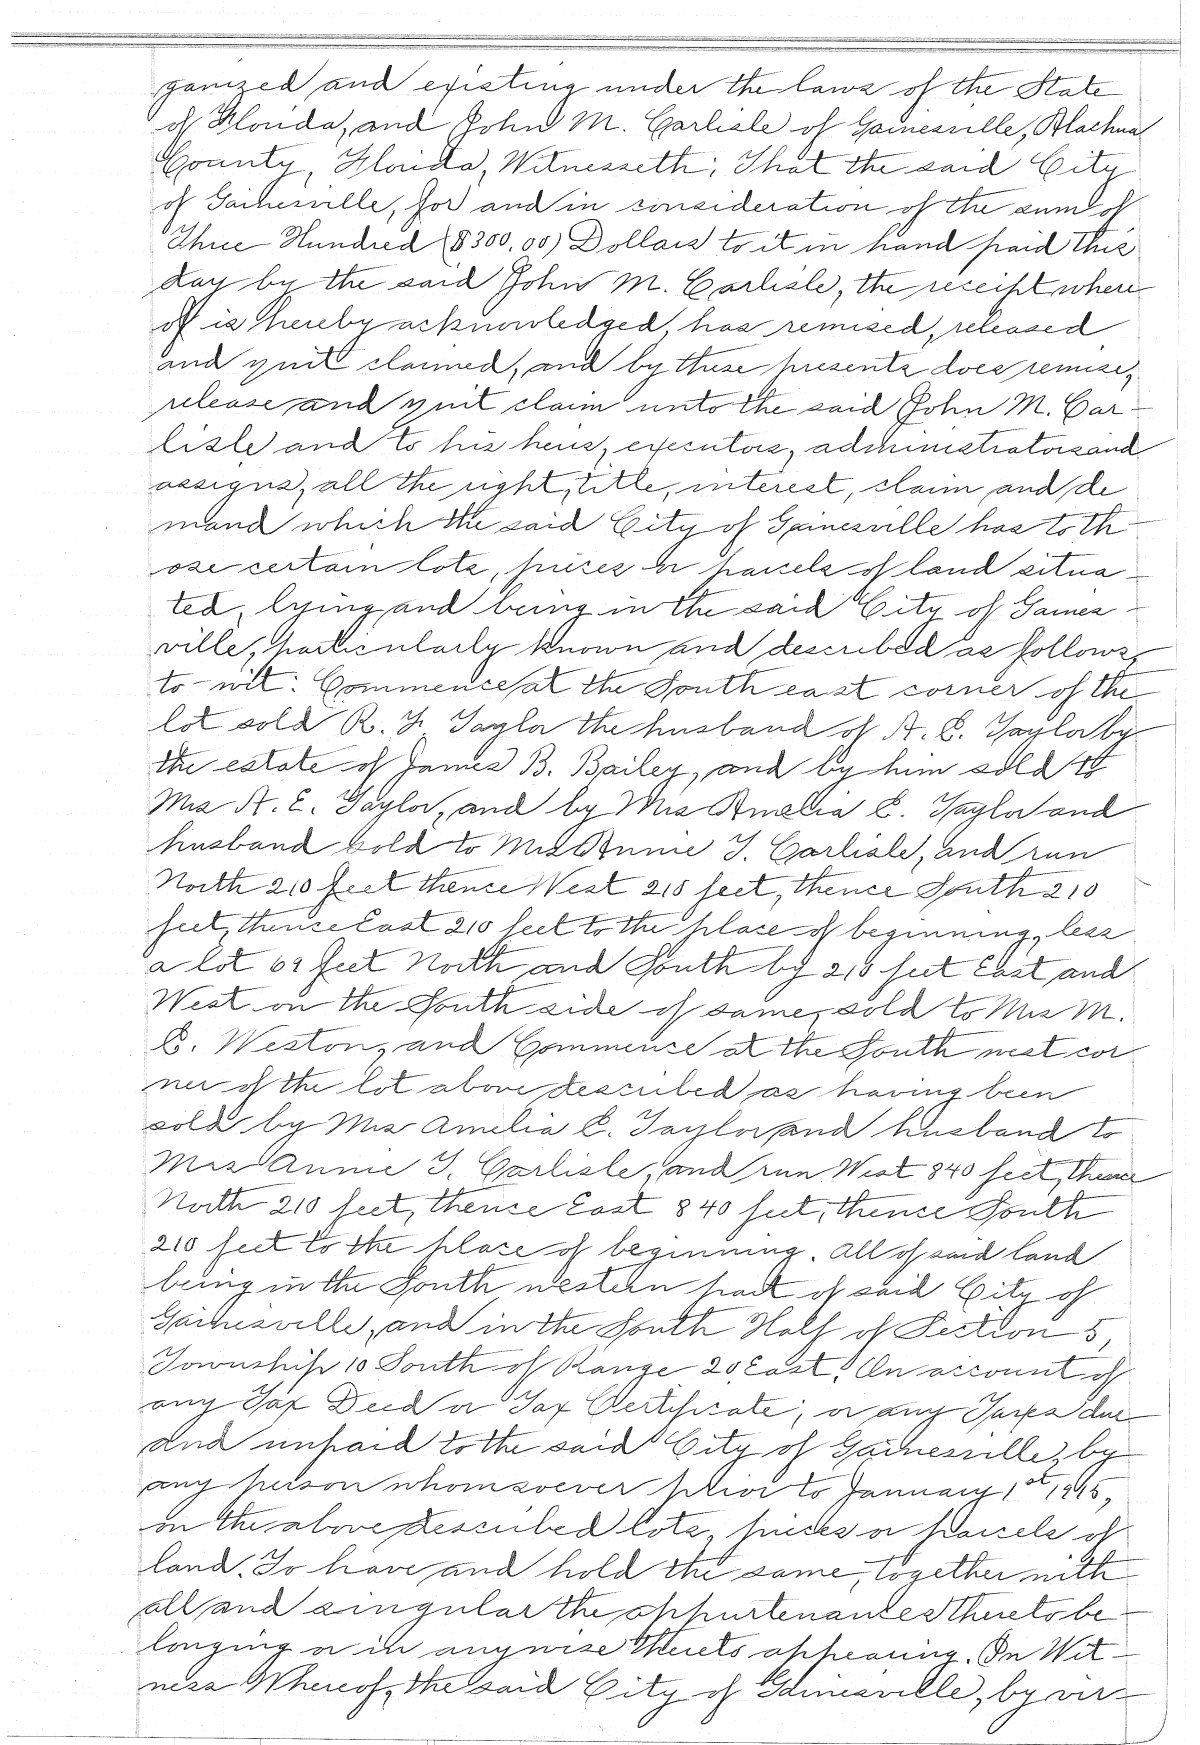 ganized and existing under the laws of the State
of Florida, and John M. Carlisle of Gainesville, Alachua
County, Florida, Witnesseth; That the said City
of Gainesville, for and in consideration of the sum of
Three Hundred ($300.00) Dollars to it in hand paid this
day by the said John M. Carlisle, the receipt where
of is hereby acknowledged, has remised, released
and quit claimed, and by these presents does remise,
release and quit claim unto the said John M. Car-
lisle and to his heirs, executors, administrators and
assigns, all the right, title, interest, claim and de
mand which the said City of Gainesville has to th
ose certain lots, pieces or parcels of land situa-
ted, lying and being in the said City of Gaines-
ville, particularly known and described as follows,
to-wit: Commence at the South east corner of the
lot sold R. F. Taylor the husband of A. E. Taylor by
the estate of James B. Bailey, and by him sold to
Mrs A. E. Taylor, and by Mrs Amelia E. Taylor and
husband sold to Mrs Annie T. Carlisle, and run
North 210 feet thence West 210 feet, thence South 210
feet, thence East 210 feet to the place of beginning, less
a lot 69 feet North and South by 210 feet East and
West on the South side of same, sold to Mrs M.
E. Weston, and Commence at the South west cor
ner of the lot above described as having been
sold by Mrs Amelia E. Taylor and husband to
Mrs Annie T. Carlisle, and run West 840 feet, thence
North 210 feet, thence East 840 feet, thence South
210 feet to the place of beginning. All of said land
being in the South western part of said City of
Gainesville, and in the South Half of Section 5,
Township 10 South of Range 20 East. On account of
any Tax Deed or Tax Certificate, or any Taxes due
and unpaid to the said City of Gainesville, by
any person whomsoever prior to January 1st
on the above described lots, pieces or parcels of
land. To have and hold the same, together with
all and singular the appurtenances thereto be-
longing or in anywise thereto appearing. In Wit-
ness Whereof, the said City of Gainesville, by vir-